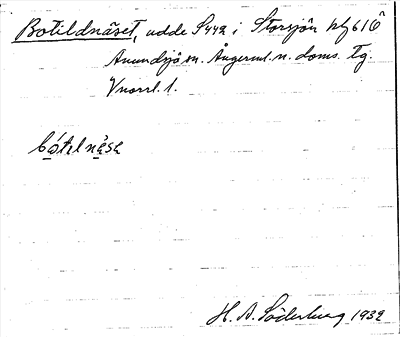 Botildnäset, udde S442 i Storsjön kbl 61 G
Anundsjö sn. Ångerml. n. doms. tg.
Vnorrl. l.
bótelnäse
H. A. Söderberg 1932